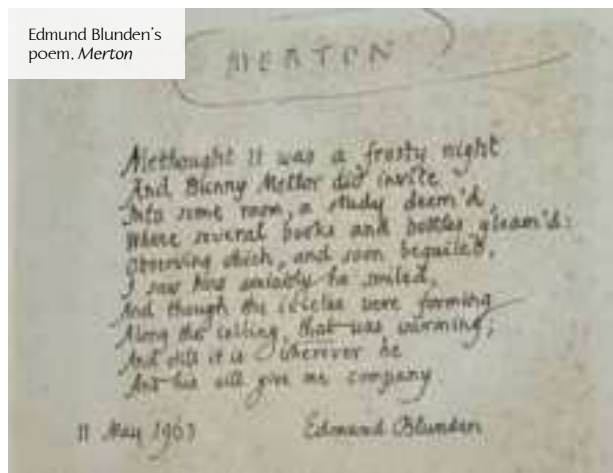 Edmund Blunden's
poem, Merton
MERTON
Methought it was a frosty night
And Bunny Mellor did invite
Into some room, a study deem'd,
Where several books and bottles gleam'd:
Observing which, and soon beguiled,
I saw how amiably he smiled,
And though the icicles were forming
Along the ceiling, that was warming;
And still it is wherever he
And his will give me company
11 May 1963
Edmund Blunden